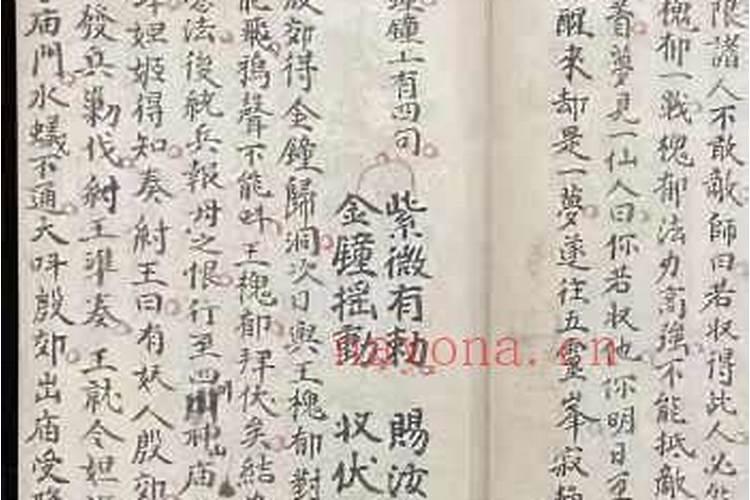 限諸人不敢敵師曰若収得此人必能
槐郁一戰槐郁法力高強不能抵敵
着夢見一仙人曰你若収他你明日可
醒來却是一夢遂往五靈峯寂
鐘上有四句
紫微有勅 賜汝
金鐘搖動 収伏
殷郊得金鐘歸洞次日與王槐郁對
能飛鴉聲不能呌王槐郁拜伏矣結
法後統兵報母之恨行至四川神庙
妲姬得知奏紂王曰有妖人殷郊
發兵勦伐紂王準奏王就令妲
庙門水蟻不通大呌殷郊出庙受
naxona.cn